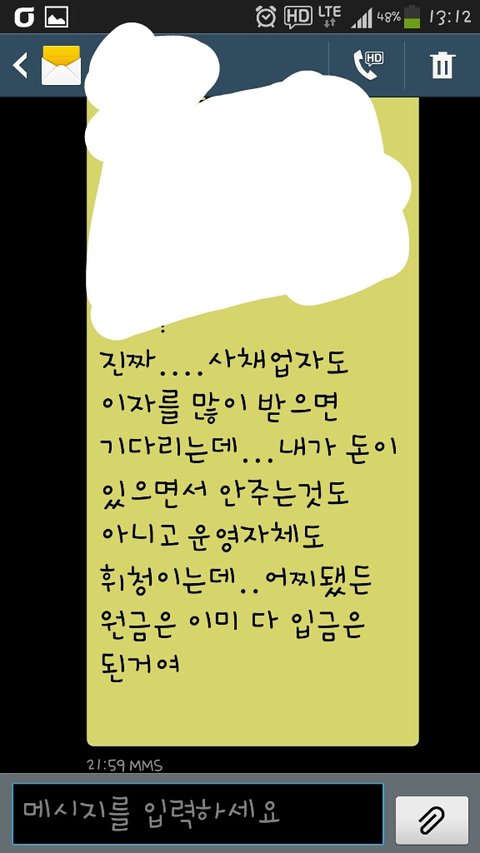 HD LTE 48% 13:12
HD
진짜....사채업자도
이자를 많이 받으면
기다리는데...내가 돈이
있으면서 안주는것도
아니고 운영자체도
휘청이는데..어찌됐든
원금은 이미 다 입금은
된거여
21:59 MMS
메시지를 입력하세요